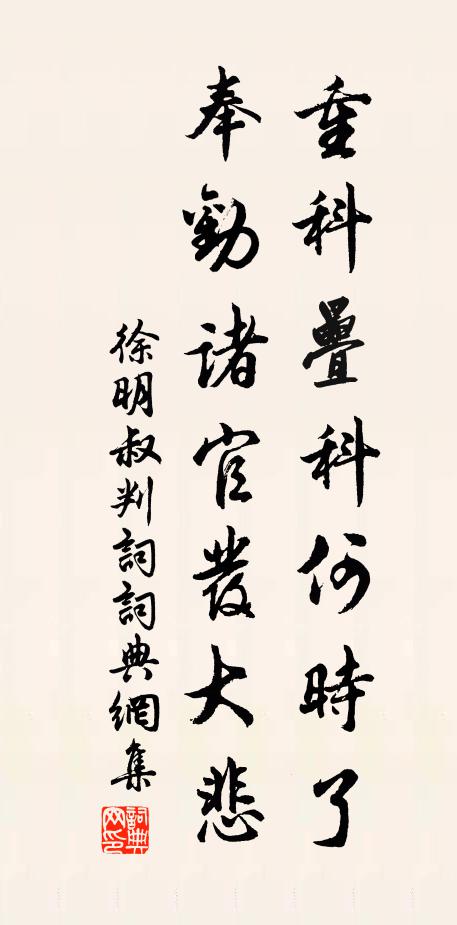 重科疊科何時了
奉勸諸官發大悲
徐明叔判詞詞典網集
詞典網印